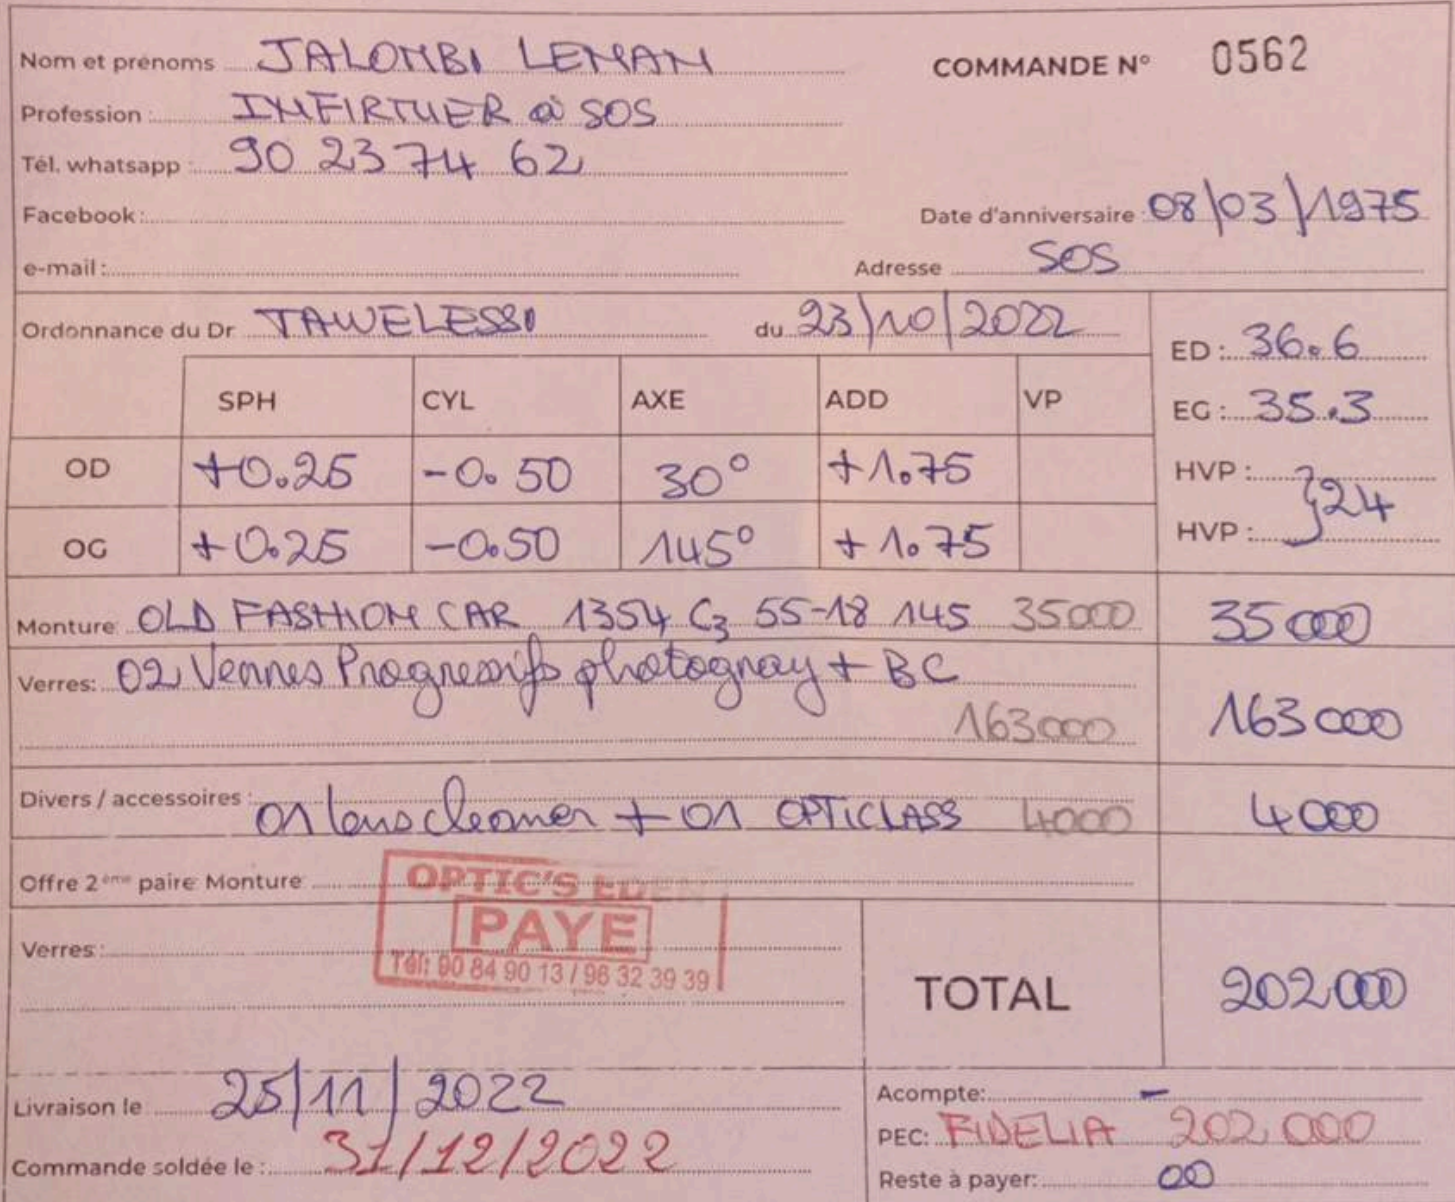 Nom et prénoms JALOMBI LEMAM COMMANDE N° 0562
Profession : INFIRMIER à SOS
Tél. whatsapp : 90 23 74 62
Facebook : Date d'anniversaire 08/03/1975
e-mail : Adresse SOS
Ordonnance du Dr TAWELESSI du 23/10/2022 ED : 36.6
SPH CYL AXE ADD VP EG : 35.3
OD +0.25 -0.50 30° +1.75 HVP :
OG +0.25 -0.50 145° +1.75 HVP : }24
Monture OLD FASHION CAR 1354 C3 55-18 145 35000 35000
Verres: 02 Verres Progressifs photogray + BC
163000 163000
Divers / accessoires : 01 lens cleaner + 01 OPTICLASS 4000 4000
Offre 2ème paire Monture
OPTIC'S EDEN
PAYE
Tél: 90 84 90 13 / 96 32 39 39
Verres :
TOTAL 202000
Livraison le 25/11/2022
Commande soldée le : 31/12/2022
Acompte: -
PEC: FIDELIA 202 000
Reste à payer: 00